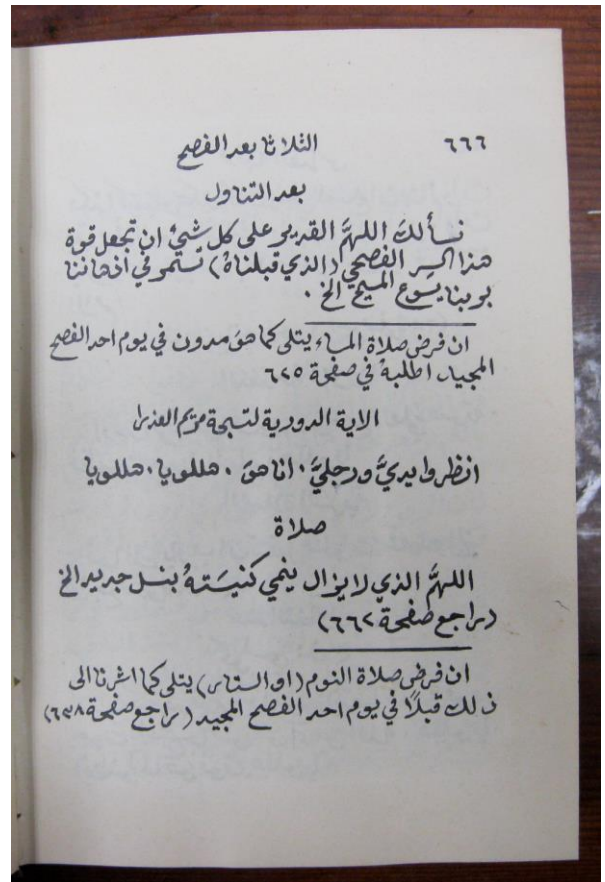 ٦٦٦ الثلاثا بعد الفصح
بعد التناول
نسألك اللهمَّ القدير على كل شيءٍ ان تجعل قوة
هذا السر الفصحي (الذي قبلناهُ) تسمو في اذهاننا
بربنا يسوع المسيح الخ .
ان فرض صلاة المساء يتلى كما هو مدون في يوم احد الفصح
المجيد اطلبهُ في صفحة ٦٢٥
الاية الدورية لتسبحة مريم العذرا
انظروا يديَّ ورجليَّ . انا هو . هللويا . هللويا
صلاة
اللهمَّ الذي لا يزال ينمي كنيستهُ بنسل جديد الخ
(راجع صفحة ٦٦٢)
ان فرض صلاة النوم (او الستار) يتلى كما اشرنا الى
ذلك قبلاً في يوم احد الفصح المجيد (راجع صفحة ٦٣٨)